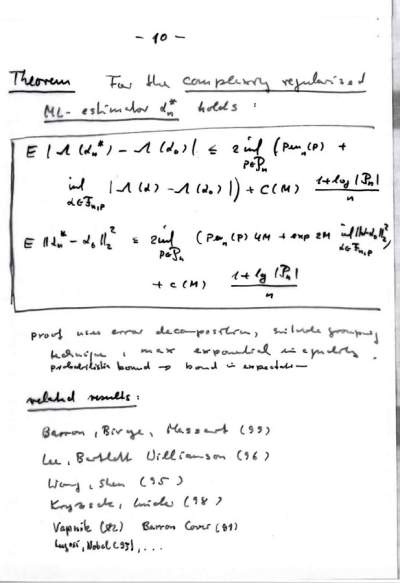 - 10 -
Theorem For the complexity regularized
ML-estimator α_n^* holds :
E |Λ(α_n^*) - Λ(α_0)| ≤ 2 inf_{p∈P_n} (pen_n(p) +
inf_{α∈F_{n,p}} |Λ(α) - Λ(α_0)|) + C(M) (1+log|P_n|)/n
E ||α_n^* - α_0||_2^2 ≤ 2 inf_{p∈P_n} (pen_n(p) 4M + exp 2M inf_{α∈F_{n,p}} ||α-α_0||_2^2)
+ c(M) (1+log|P_n|)/n
proof uses error decomposition, suitable grouping
technique, max exponential inequality.
probabilistic bound → bound in expectation
related results:
Barron, Birge, Massart (99)
Lee, Bartlett Williamson (96)
Wong, Shen (95)
Krzyzak, Linder (98)
Vapnik (82) Barron Cover (91)
Lugosi, Nobel (95), ...